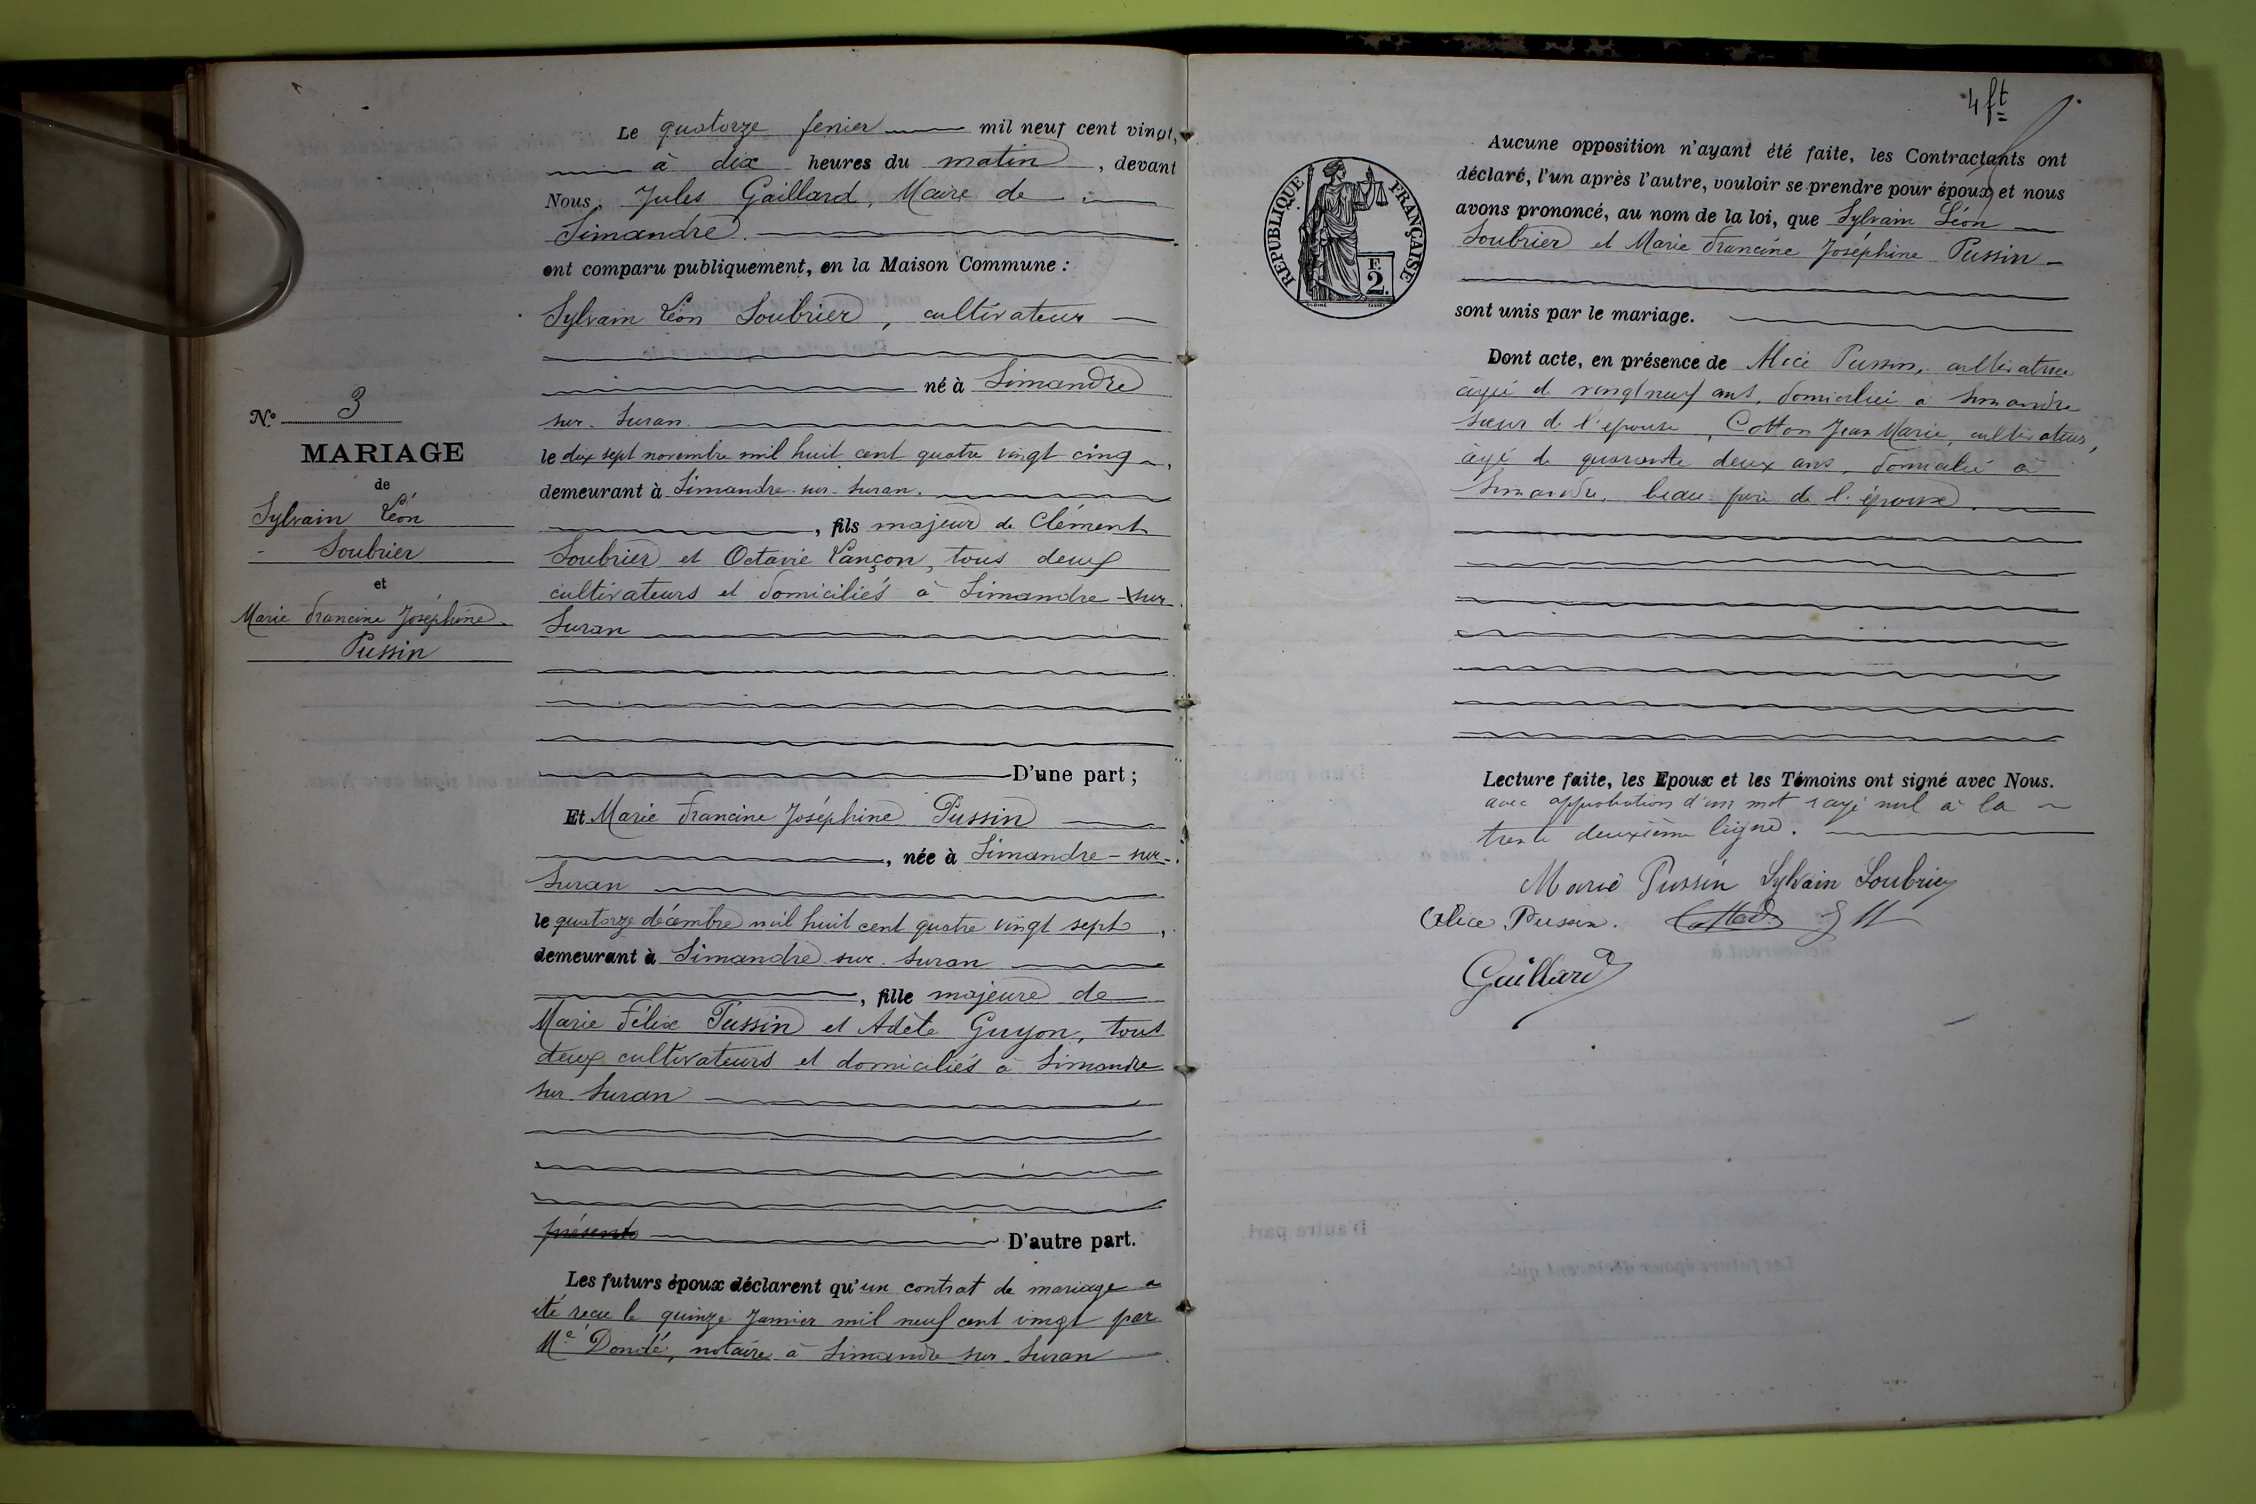 N° 3
MARIAGE
de
Sylvain Léon
Soubrier
et
Marie Francine Joséphine
Pussin
Le quatorze fevrier mil neuf cent vingt,
à dix heures du matin, devant
Nous, Jules Gaillard, Maire de
Simandre.
ont comparu publiquement, en la Maison Commune :
Sylvain Léon Soubrier, cultivateur
né à Simandre
sur-Suran.
le dix sept novembre mil huit cent quatre vingt cinq,
demeurant à Simandre-sur-Suran.
, fils majeur de Clément
Soubrier et Octavie Lançon, tous deux
cultivateurs et domiciliés à Simandre-sur
Suran
D'une part ;
Et Marie Francine Joséphine Pussin
, née à Simandre-sur-
Suran
le quatorze décembre mil huit cent quatre vingt sept,
demeurant à Simandre sur Suran
, fille majeure de
Marie Félix Pussin et Adèle Guyon, tous
deux cultivateurs et domiciliés à Simandre
sur Suran
présents D'autre part.
Les futurs époux déclarent qu'un contrat de mariage a
été reçu le quinze Janvier mil neuf cent vingt par
Me Dondé, notaire à Simandre sur-Suran
4 ft
RÉPUBLIQUE FRANÇAISE
F.
2.
Aucune opposition n'ayant été faite, les Contractants ont
déclaré, l'un après l'autre, vouloir se prendre pour époux et nous
avons prononcé, au nom de la loi, que Sylvain Léon
Soubrier et Marie Francine Joséphine Pussin
sont unis par le mariage.
Dont acte, en présence de Alice Pussin, cultivatrice
âgée de vingt neuf ans, domiciliée à Simandre
sœur de l'épouse, Cotton Jean Marie, cultivateur,
âgé de quarante deux ans, domicilié à
Simandre, beau frère de l'époux.
Lecture faite, les Epoux et les Témoins ont signé avec Nous.
avec approbation d'un mot rayé nul à la
trente deuxième ligne.
Marie Pussin Sylvain Soubrier
Alice Pussin. Cotton J M
Gaillard